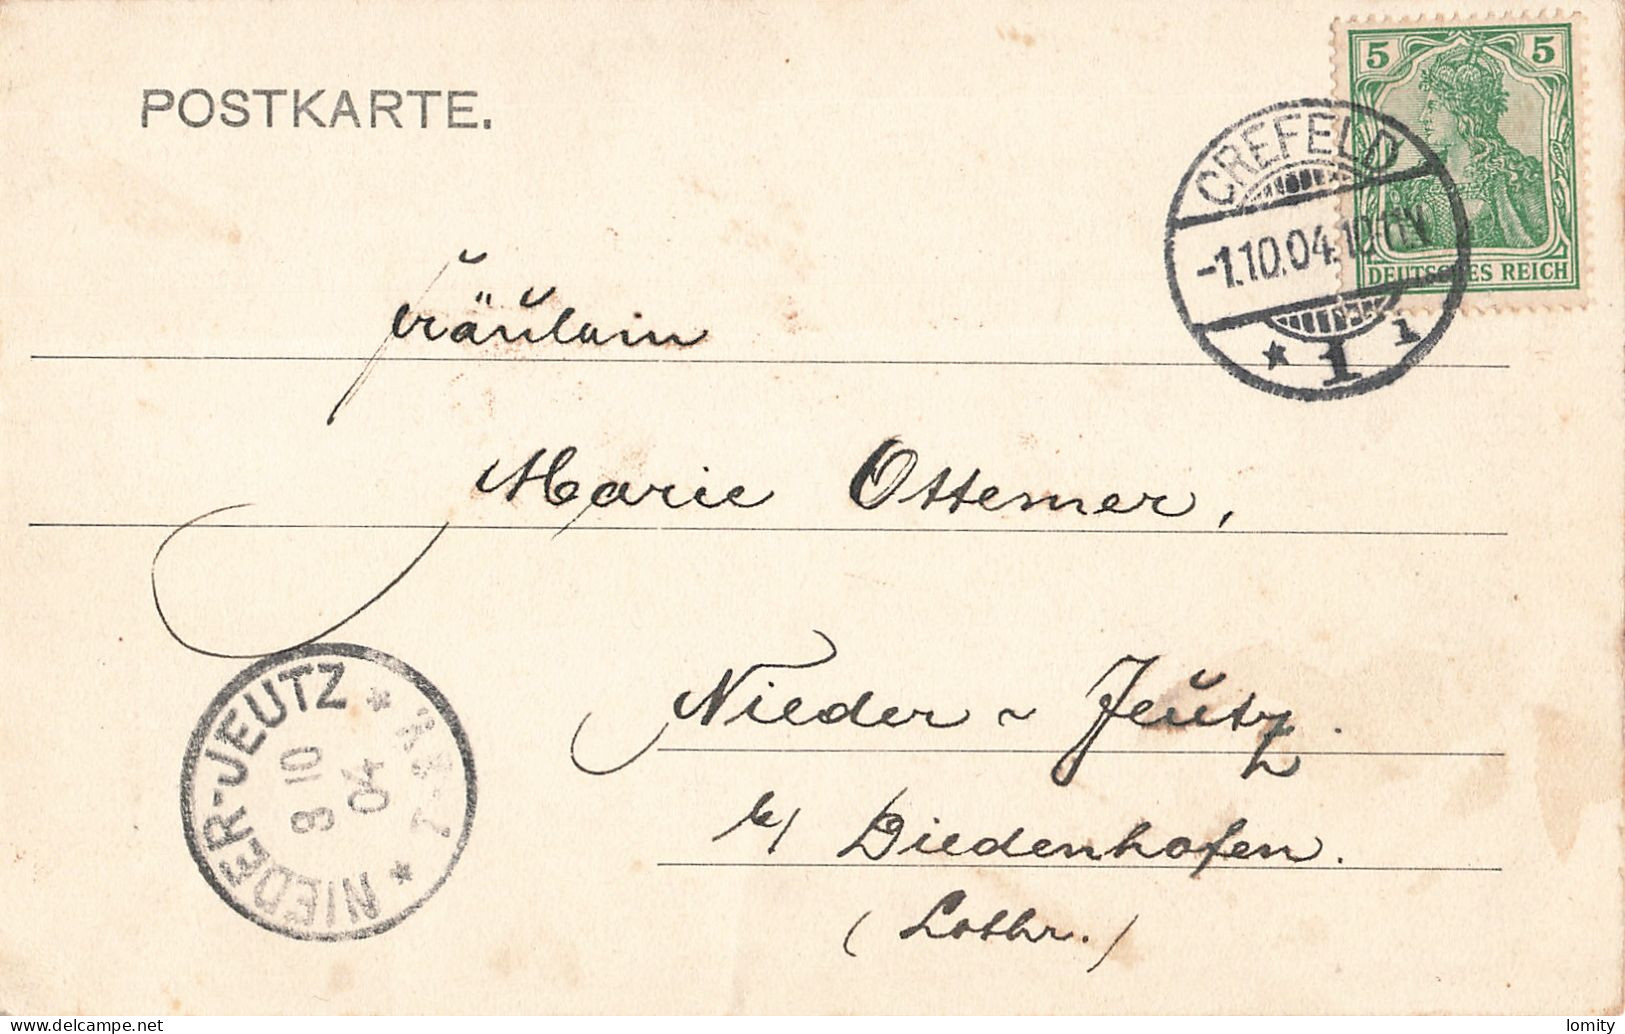 POSTKARTE.
5 5
DEUTSCHES REICH
CREFELD
-1.10.04.10-11V
* 1 i
Fräulein
Marie Ottemer,
Nieder-Jeutz.
b/ Diedenhofen.
(Lothr.)
NIEDER-JEUTZ
10
04
lomity